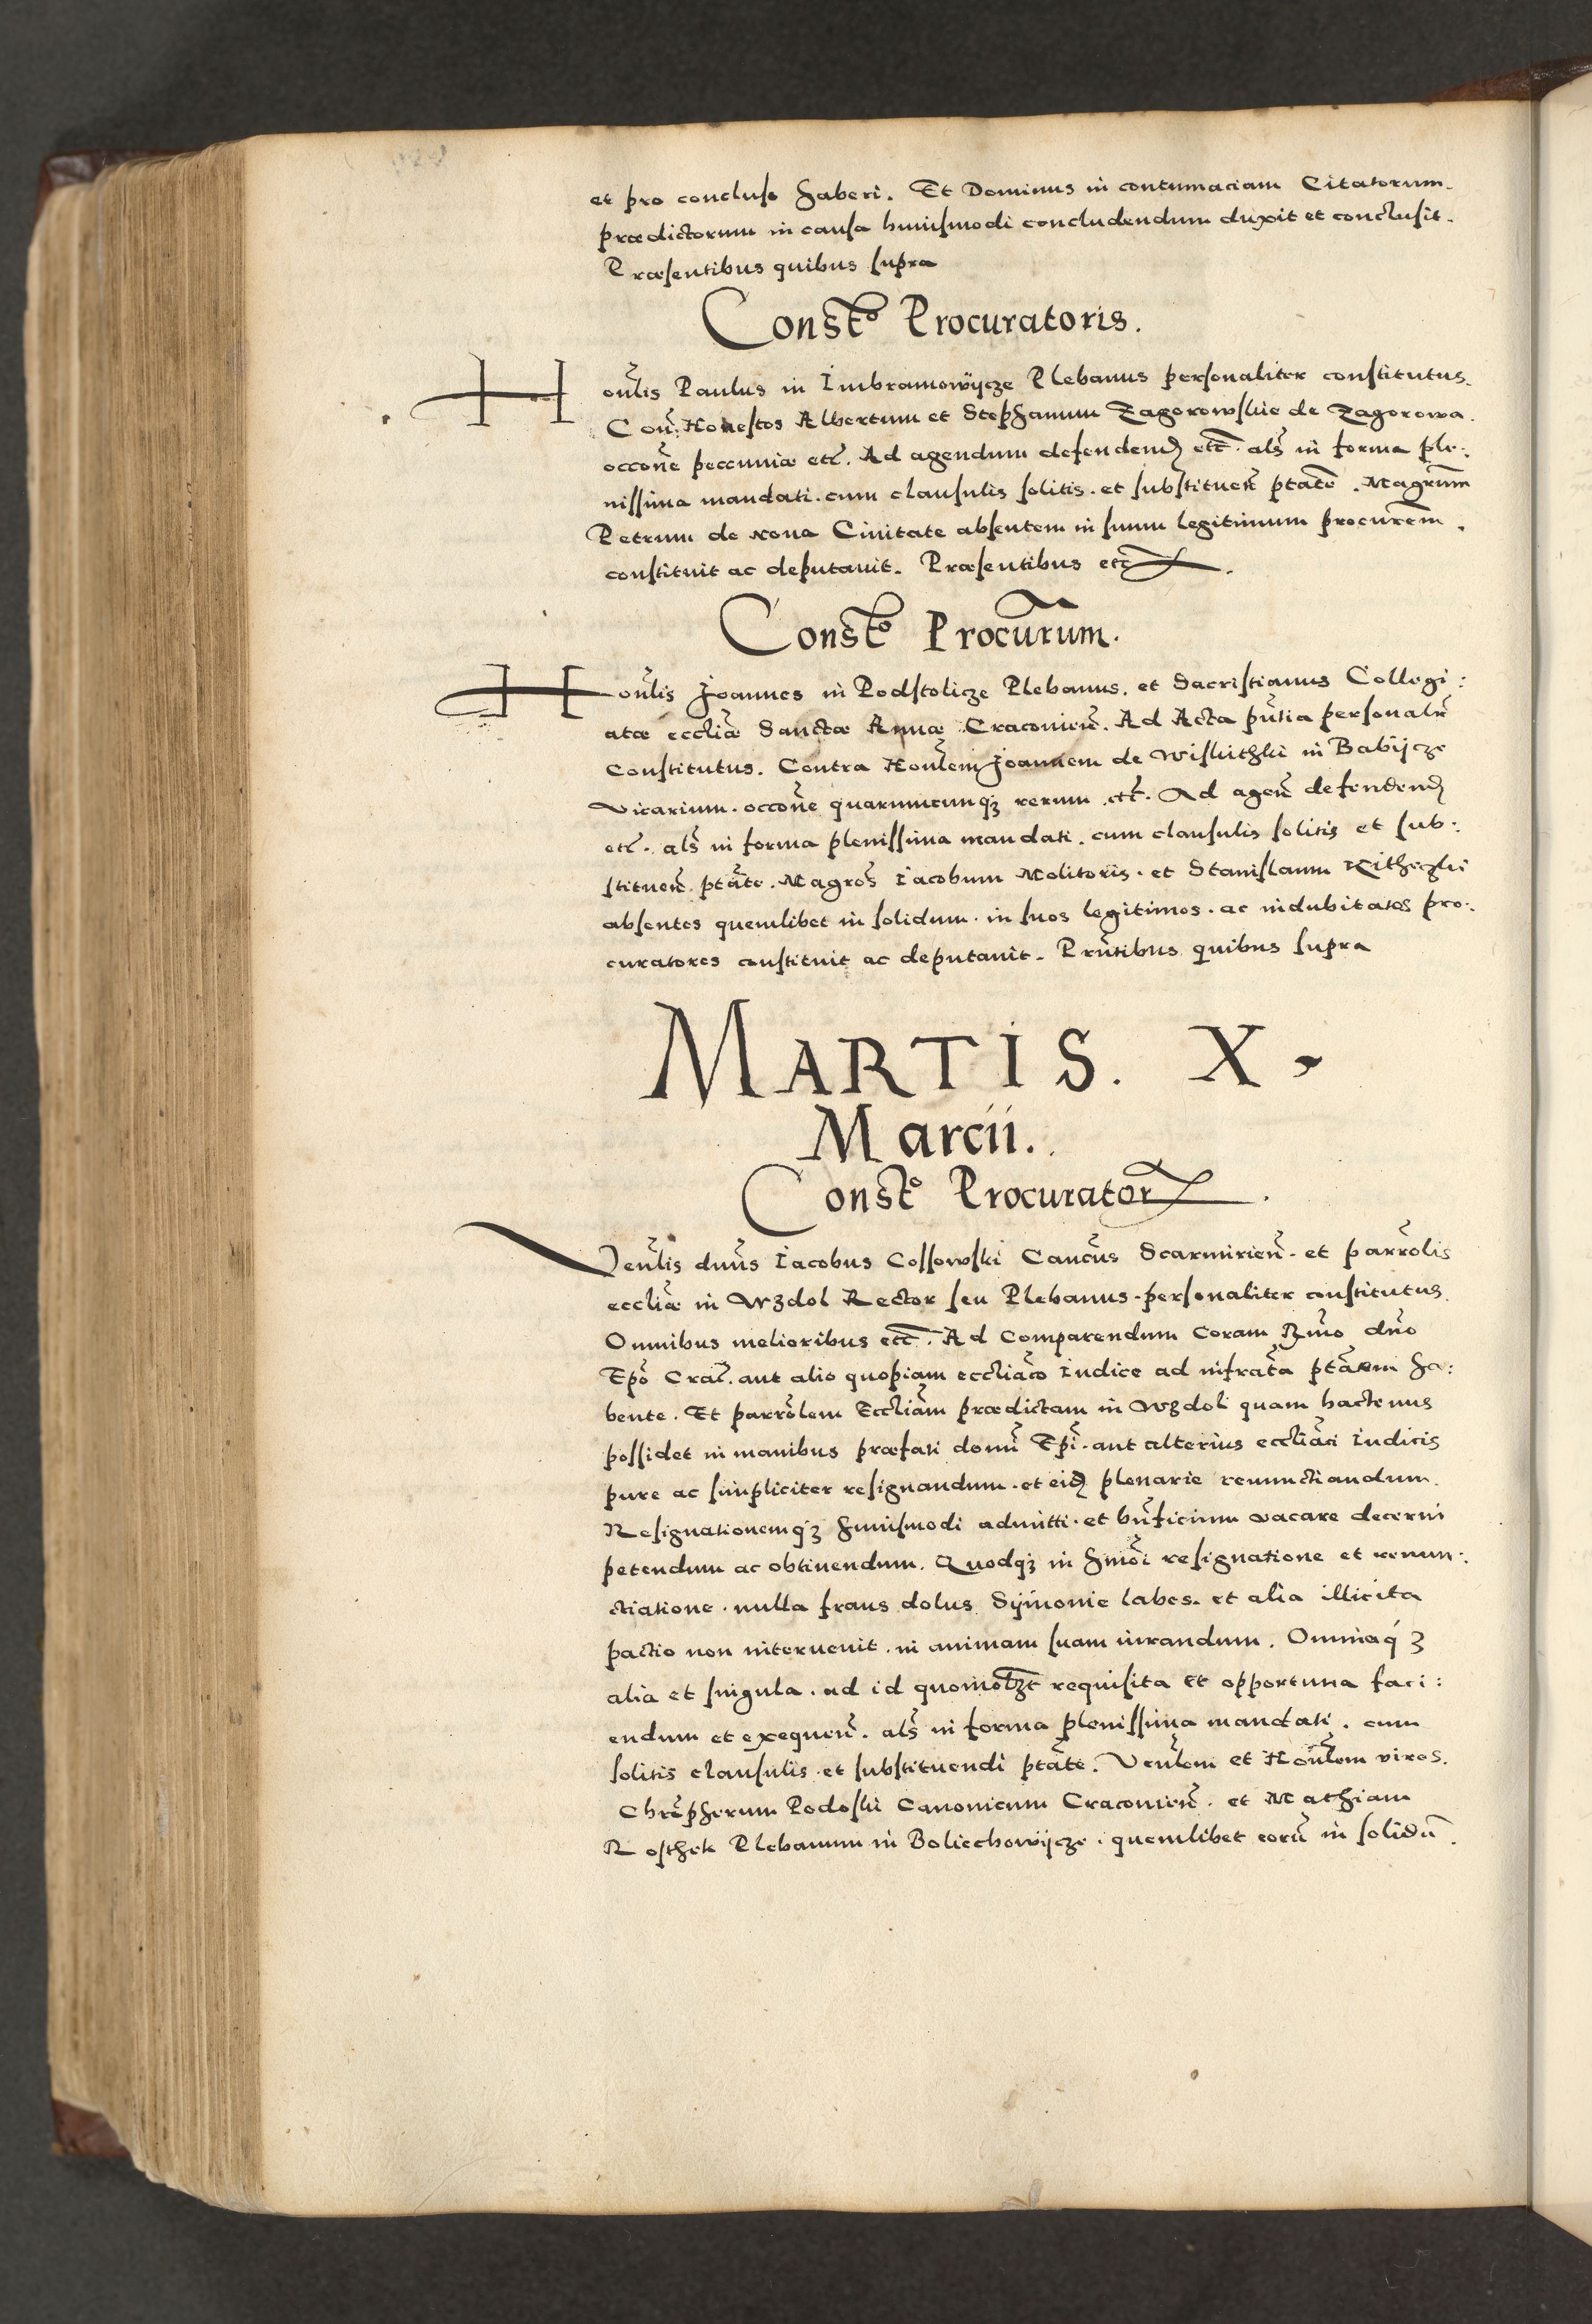 et pro concluso haberi. Et Dominus in contumaciam Citatorum.
prædictorum in causa huiusmodi concludendum duxit et conclusit.
Præsentibus quibus supra
Constõ Procuratoris.
Hoñlis Paulus in Imbramowÿcze Plebanus personaliter constitutus.
Coñ. Honestos Albertum et Stephanum Zagorowskie de Zagorowa.
occoñe peccuniæ etc̃. Ad agendum defendend̃ etc̃. als̃ in forma ple:
nissima mandati. cum clausulis solitis. et substitueñ ptãte. Magrum̃
Petrum de Nova Civitate absentem in suum legitimum procurem̃.
constituit ac deputavit. Præsentibus etc̃.
Constõ Procurũm.
Hoñlis Joannes in Podstolicze Plebanus. et Sacristianus Collegi:
atæ eccliæ̃ Sanctæ Annæ Cracovieñ. Ad Acta pñtia personalr̃
Constitutus. Contra Hoñlem Joannem de Wislithki in Babÿcze
Vicarium. occoñe quarumcunqȝ rerum etc̃. Ad ageñ defendend̃
etc̃. als̃ in forma plenissima mandati. cum clausulis solitis et sub:
stitueñ ptãte. Magros̃ Iacobum Molitoris. et Stanislaum
absentes quemlibet in solidum. in suos legitimos. ac indubitatos pro:
curatores constituit ac deputavit. Prñtibus quibus supra
MARTIS. X.
Marcii.
Constõ Procurator
Veñlis dñus Iacobus Cossowski Cancũs Scarmirieñ. et parrõlis
eccliæ̃ in Wzdol Rector seu Plebanus. personaliter constitutus
Omnibus melioribus etc̃. Ad Comparendum Coram Rm̃o dño
Epõ Crac̃. aut alio quopiam eccliãco Iudice ad infrãta ptãtem ha:
bente. Et parrõlem Eccliãm prædictam in Wzdol quam hactenus
possidet in manibus præfati domñ Epĩ. aut alterius eccliãci Iudicis
pure ac simpliciter resignandum. et eid̃ plenarie renunctiandum.
Resignationemqȝ huiusmodi admitti. et bñficium vacare decerni
petendum ac obtinendum. Quodqȝ in hmõi resignatione et renun:
ctiatione. nulla fraus dolus Sÿmonie labes. et alia illicita
pactio non intervenit. in animam suam iurandum. Omniaqȝ
alia et singula. ad id quomolȝt̃ requisita et opportuna faci:
endum et exequeñ. als̃ in forma plenissima mandati. cum
solitis clausulis et substituendi ptãte. Veñlem et Hoñlem viros.
Chrc̃pherum Podoski Canonicum Cracovieñ. et Mathiam
Rosthek Plebanum in Boliechowÿcze. quemlibet eorũ in solidũ.